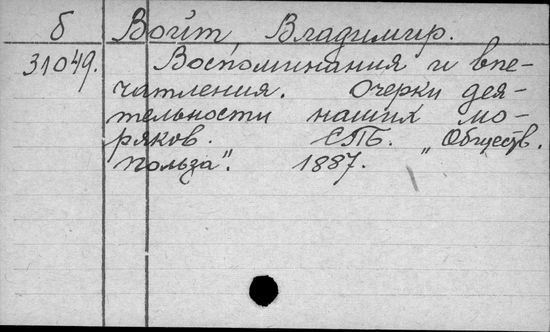 б Войт, Владимир.
31049. Воспоминания и впе-
чатления. Очерки дея-
тельности наших мо-
ряков. СПБ. „Обществ.
польза“. 1887.